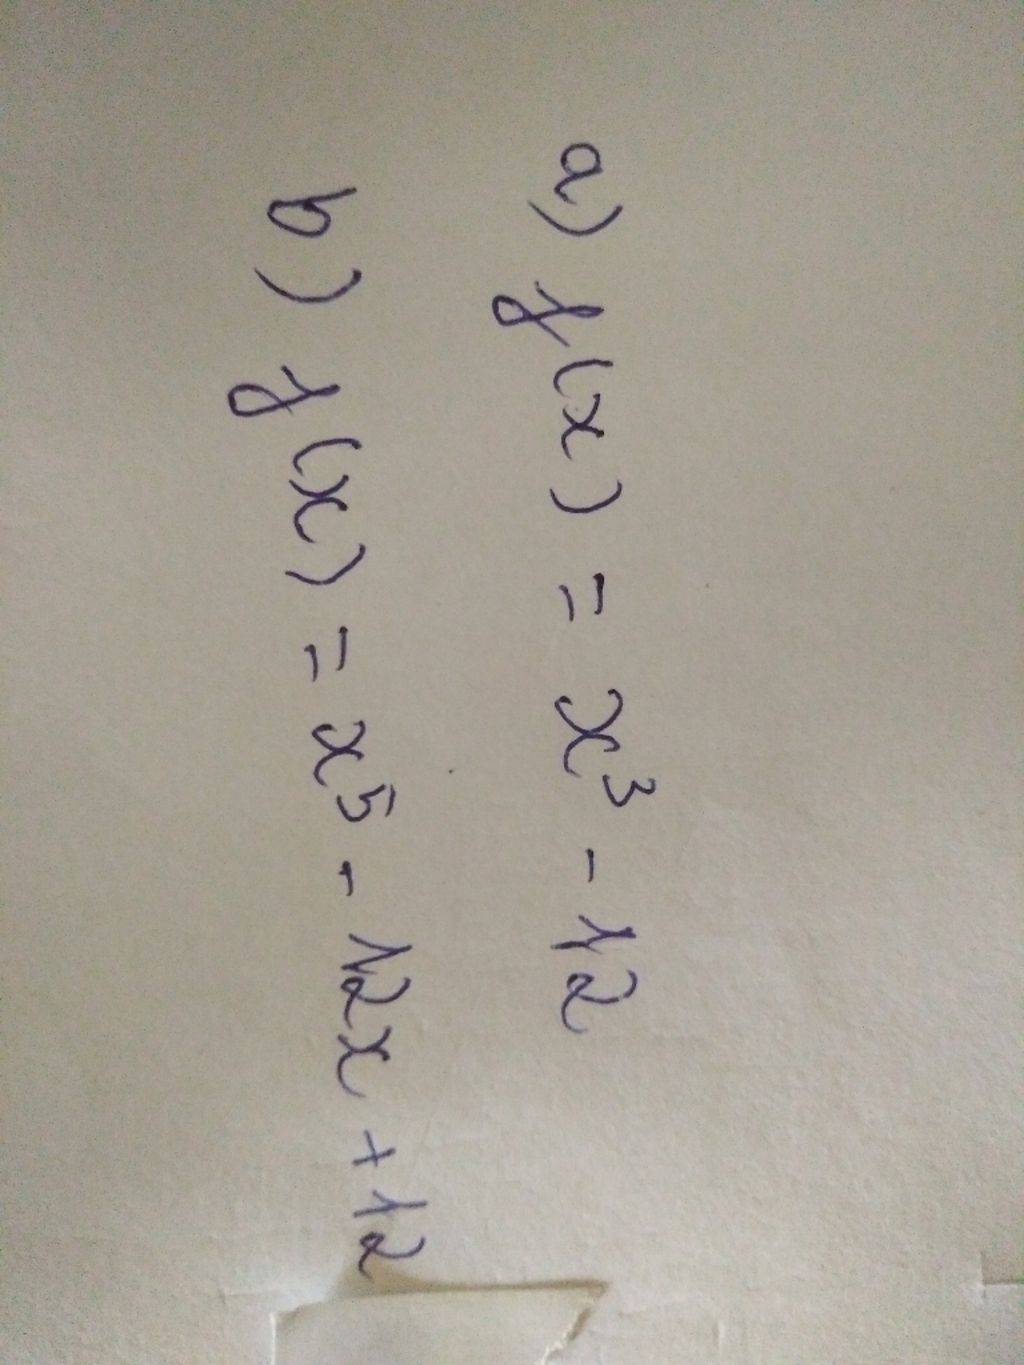 a) f(x) = x³ - 12
b) f(x) = x⁵ - 12x + 12